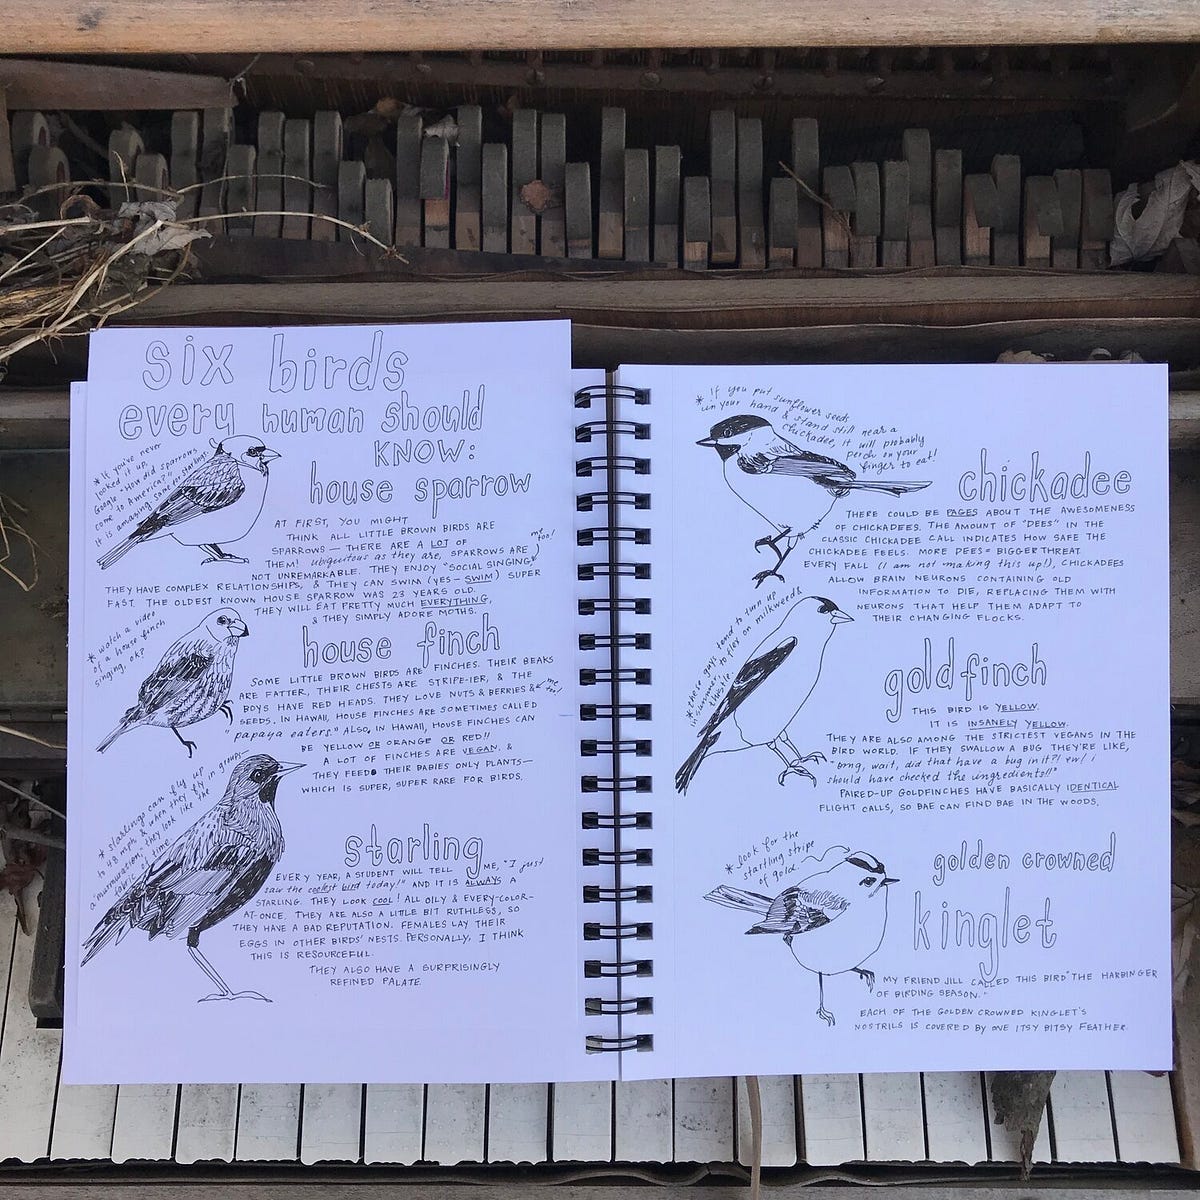 six birds
every human should
KNOW:
* If you've never
looked it up,
Google "How did sparrows
come to America?"
It is amazing. Same w/ starling!
house sparrow
AT FIRST, YOU MIGHT
THINK ALL LITTLE BROWN BIRDS ARE
SPARROWS — THERE ARE A LOT OF
THEM! ubiquitous as they are, SPARROWS ARE
NOT UNREMARKABLE. THEY ENJOY "SOCIAL SINGING,"
me too!
THEY HAVE COMPLEX RELATIONSHIPS, & THEY CAN SWIM (YES – SWIM) SUPER
FAST. THE OLDEST KNOWN HOUSE SPARROW WAS 23 YEARS OLD.
THEY WILL EAT PRETTY MUCH EVERYTHING,
& THEY SIMPLY ADORE MOTHS.
* watch a video
of a house finch
singing, ok?
house finch
SOME LITTLE BROWN BIRDS ARE FINCHES. THEIR BEAKS
ARE FATTER, THEIR CHESTS ARE STRIPE-IER, & THE
BOYS HAVE RED HEADS. THEY LOVE NUTS & BERRIES &
me too!
SEEDS. IN HAWAII, HOUSE FINCHES ARE SOMETIMES CALLED
"papaya eaters." ALSO, IN HAWAII, HOUSE FINCHES CAN
BE YELLOW OR ORANGE OR RED!!
A LOT OF FINCHES ARE VEGAN, &
THEY FEED THEIR BABIES ONLY PLANTS—
WHICH IS SUPER, SUPER RARE FOR BIRDS.
* starlings can fly up
to 48 mph, & when they fly in groups—
a "murmuration," they look like the
fabric of time.
starling
EVERY YEAR, A STUDENT WILL TELL ME, "I just
saw the coolest bird today!" AND IT IS ALWAYS A
STARLING. THEY LOOK COOL! ALL OILY & EVERY-COLOR-
AT-ONCE. THEY ARE ALSO A LITTLE BIT RUTHLESS, SO
THEY HAVE A BAD REPUTATION. FEMALES LAY THEIR
EGGS IN OTHER BIRDS' NESTS. PERSONALLY, I THINK
THIS IS RESOURCEFUL.
THEY ALSO HAVE A SURPRISINGLY
REFINED PALATE.
* If you put sunflower seeds
in your hand & stand still near a
chickadee, it will probably
perch on your
finger to eat!
chickadee
THERE COULD BE PAGES ABOUT THE AWESOMENESS
OF CHICKADEES. THE AMOUNT OF "DEES" IN THE
CLASSIC CHICKADEE CALL INDICATES HOW SAFE THE
CHICKADEE FEELS. MORE DEES = BIGGER THREAT.
EVERY FALL (I am not making this up!), CHICKADEES
ALLOW BRAIN NEURONS CONTAINING OLD
INFORMATION TO DIE, REPLACING THEM WITH
NEURONS THAT HELP THEM ADAPT TO
THEIR CHANGING FLOCKS.
* these guys tend to turn up
in summer, to play on milkweed &
thistle
goldfinch
THIS BIRD IS YELLOW.
IT IS INSANELY YELLOW.
THEY ARE ALSO AMONG THE STRICTEST VEGANS IN THE
BIRD WORLD. IF THEY SWALLOW A BUG THEY'RE LIKE,
"omg, wait, did that have a bug in it?! ew! i
should have checked the ingredients!!"
PAIRED-UP GOLDFINCHES HAVE BASICALLY IDENTICAL
FLIGHT CALLS, SO BAE CAN FIND BAE IN THE WOODS.
* look for the
startling stripe
of gold.
golden crowned
kinglet
MY FRIEND JILL CALLED THIS BIRD "THE HARBINGER
OF BIRDING SEASON."
EACH OF THE GOLDEN CROWNED KINGLET'S
NOSTRILS IS COVERED BY ONE ITSY BITSY FEATHER.